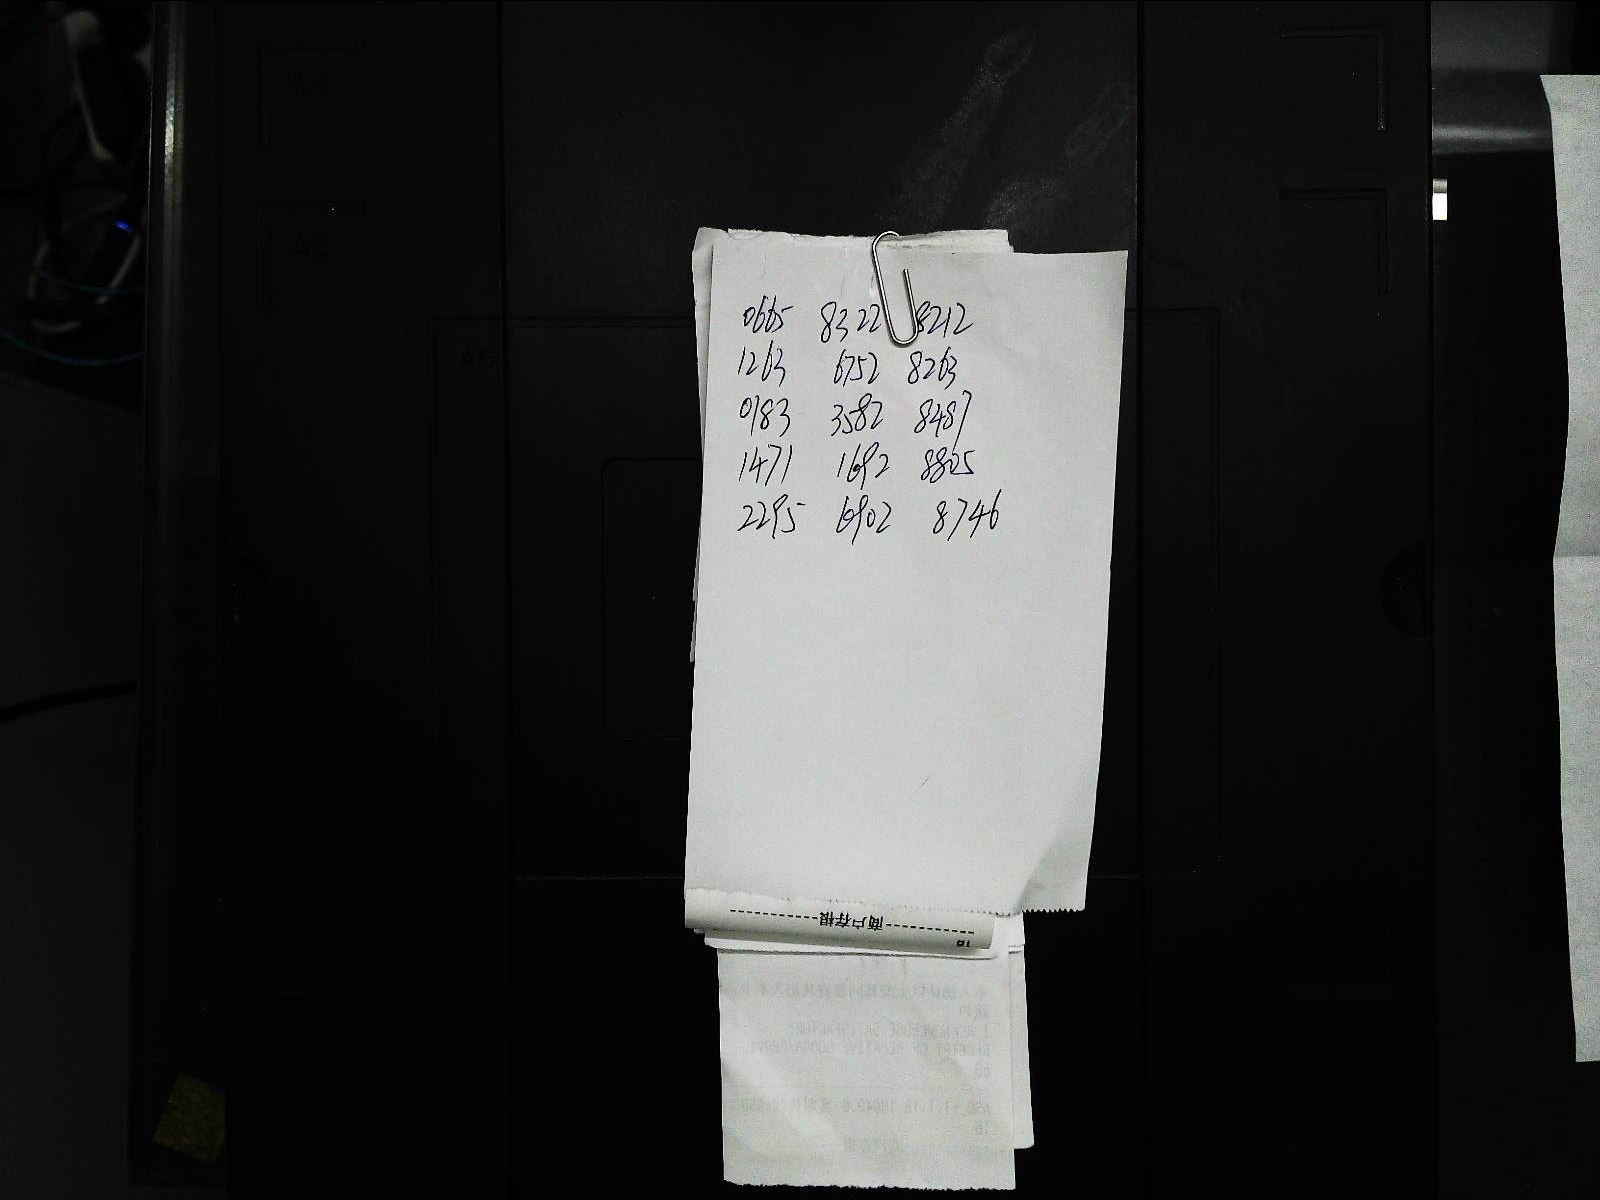 A5
A6
0665 8322 8212
1263 6752 8263
0183 3582 8487
1471 1692 8805
2295 6902 8746
商户存根
16
I ACKNOWLEDGE SATISFACTORY
RECEIPT OF RELATIVE GOODS/SERVIC
ES